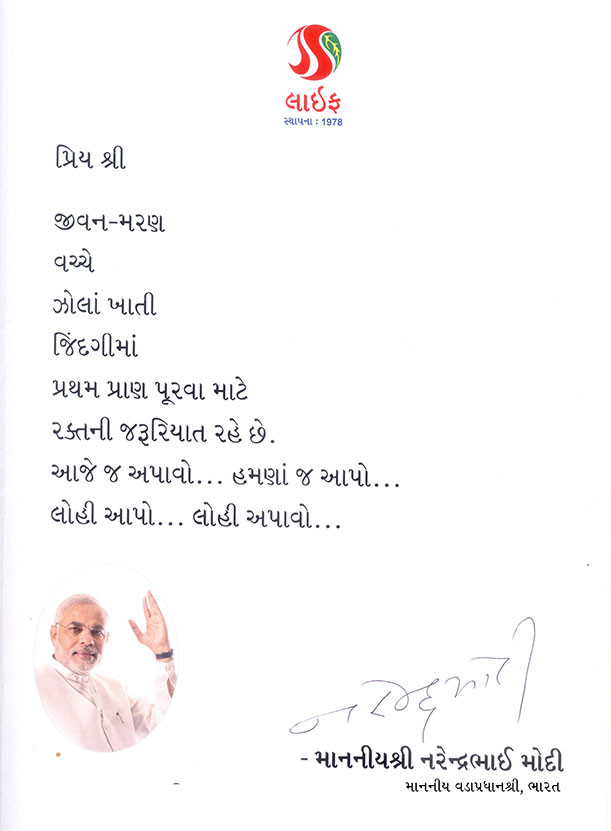 લાઇફ
સ્થાપના : 1978
પ્રિય શ્રી
જીવન-મરણ
વચ્ચે
ઝોલાં ખાતી
જિંદગીમાં
પ્રથમ પ્રાણ પૂરવા માટે
રક્તની જરૂરિયાત રહે છે.
આજે જ અપાવો... હમણાં જ આપો...
લોહી આપો... લોહી અપાવો...
નરેન્દ્ર મોદી
- માનનીયશ્રી નરેન્દ્રભાઈ મોદી
માનનીય વડાપ્રધાનશ્રી, ભારત